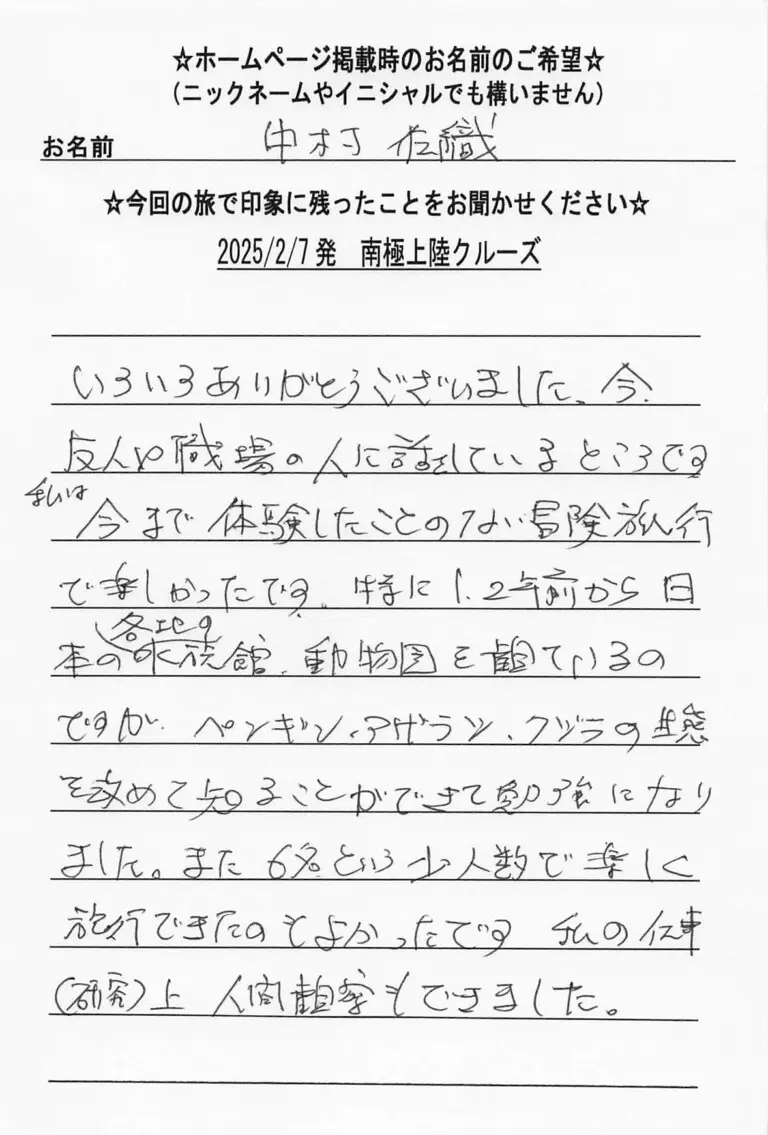 ☆ホームページ掲載時のお名前のご希望☆
(ニックネームやイニシャルでも構いません)
お名前 中村 佐織
☆今回の旅で印象に残ったことをお聞かせください☆
2025/2/7発 南極上陸クルーズ
いろいろありがとうございました。今
友人や職場の人に話しているところです
私は今まで体験したことのない冒険旅行
で楽しかったです。特に1.2年前から日
本の各地の水族館、動物園を観ているの
ですが、ペンギン、アザラシ、クジラの生態
を改めて知ることができて勉強になり
ました。また6名という少人数で楽しく
旅行できたのもよかったです 私の仕事
(研究)上 人間観察もできました。